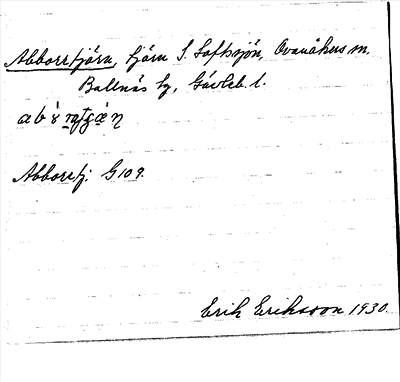 Abborrtjärn, tjärn S. Lofssjön, Ovanåkers sn.
Bollnäs tg, Gävleb. l.
Abborrtj. G109.
Erik Eriksson 1930.